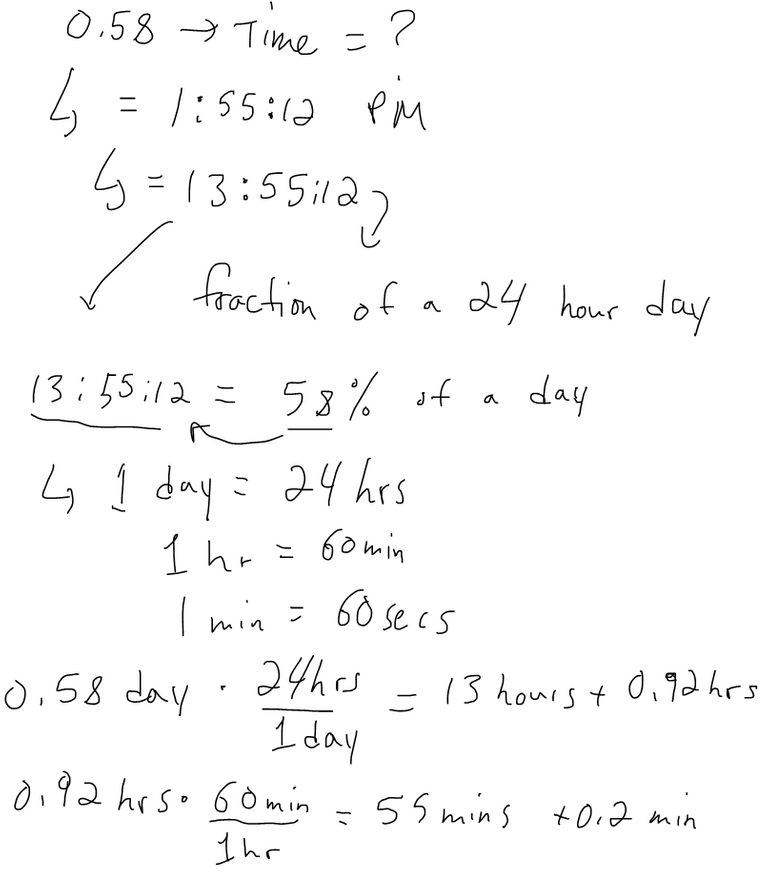 0.58 → Time = ?
↳ = 1:55:12 PM
↳ = 13:55:12
fraction of a 24 hour day
13:55:12 = 58% of a day
↳ 1 day = 24 hrs
1 hr = 60 min
1 min = 60 secs
0.58 day · 24hrs/1day = 13 hours + 0.92 hrs
0.92 hrs · 60min/1hr = 55 mins + 0.2 min